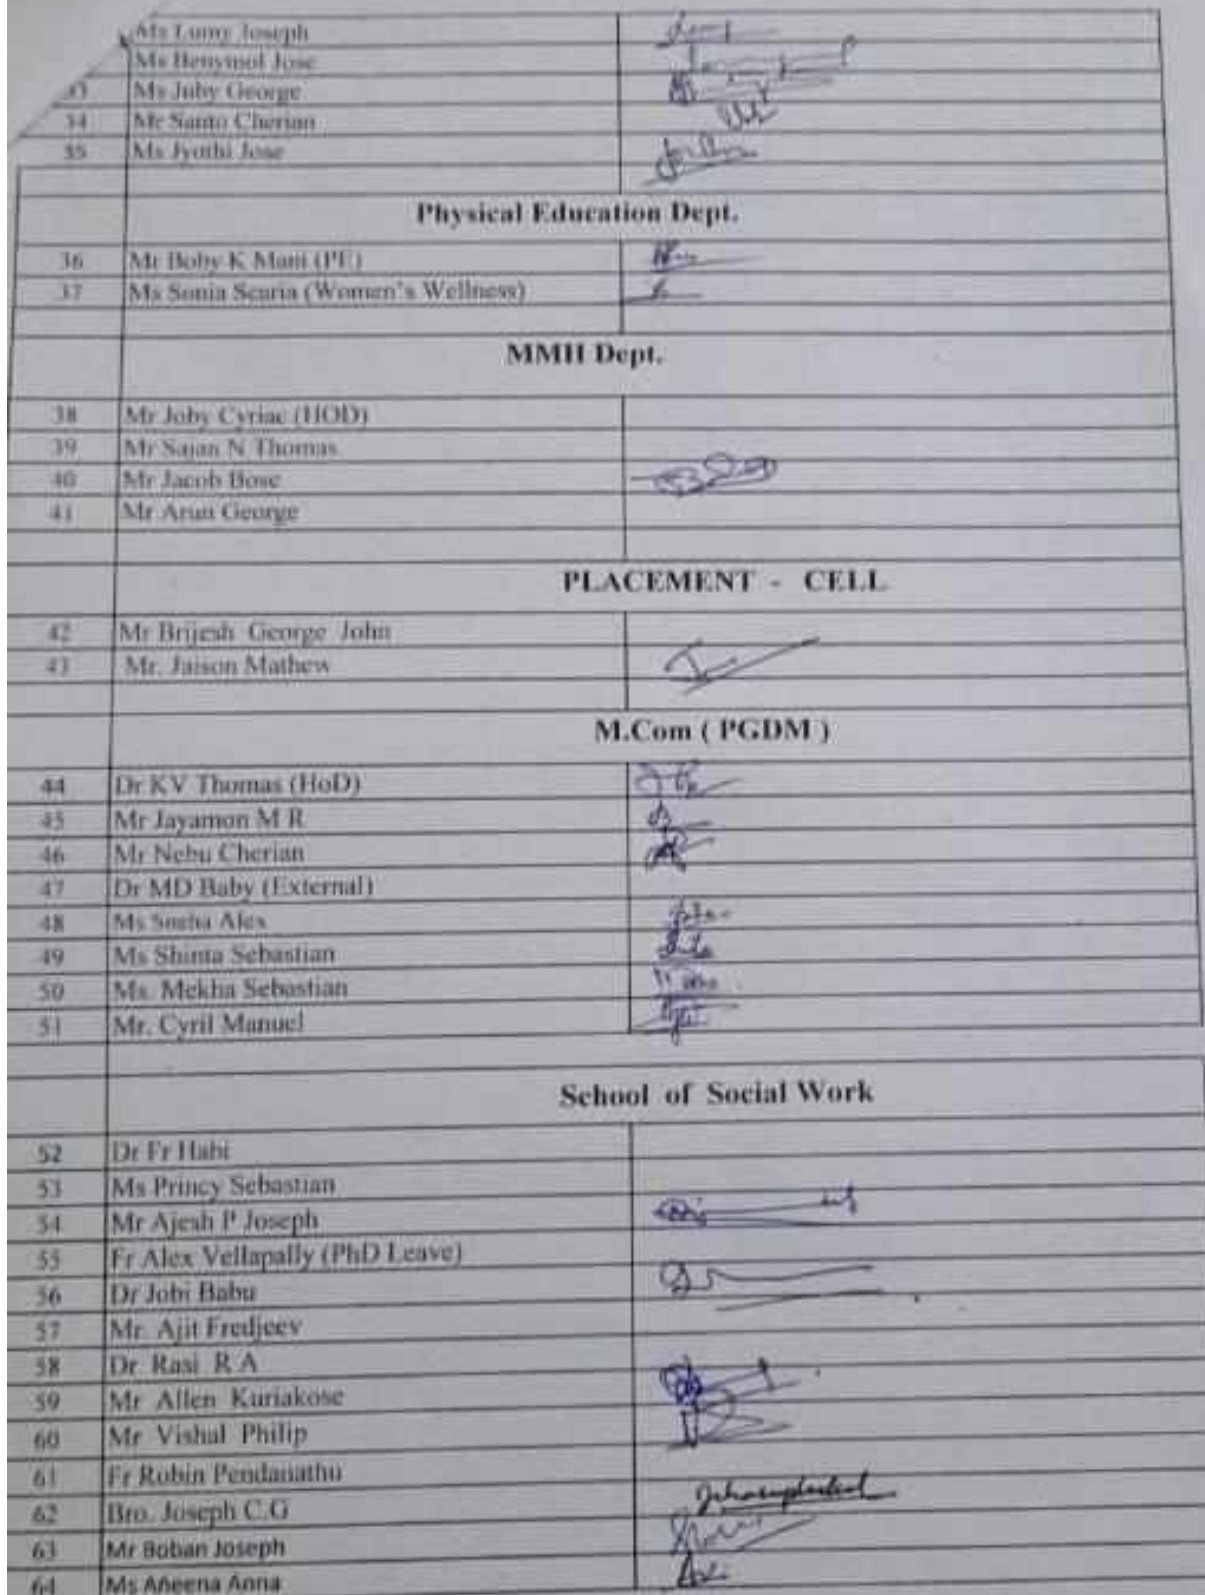 Ms Lumy Joseph
Ms Benymol Jose
33 Ms Juby George
34 Mr Santo Cherian
35 Ms Jyothi Jose
Physical Education Dept.
36 Mr Boby K Mani (PE)
37 Ms Sonia Scaria (Women's Wellness)
MMH Dept.
38 Mr Joby Cyriac (HOD)
39 Mr Sajan N Thomas
40 Mr Jacob Bose
41 Mr Arun George
PLACEMENT - CELL
42 Mr Brijesh George John
43 Mr. Jaison Mathew
M.Com ( PGDM )
44 Dr KV Thomas (HoD)
45 Mr Jayamon M R
46 Mr Nebu Cherian
47 Dr MD Baby (External)
48 Ms Sneha Alex
49 Ms Shinta Sebastian
50 Ms. Mekha Sebastian
51 Mr. Cyril Manuel
School of Social Work
52 Dr Fr Habi
53 Ms Princy Sebastian
54 Mr Ajesh P Joseph
55 Fr Alex Vellapally (PhD Leave)
56 Dr Jobi Babu
57 Mr. Ajit Fredjeev
58 Dr Rasi R A
59 Mr Allen Kuriakose
60 Mr Vishal Philip
61 Fr Robin Pendanathu
62 Bro. Joseph C.G
63 Mr Boban Joseph
64 Ms Aneena Anna